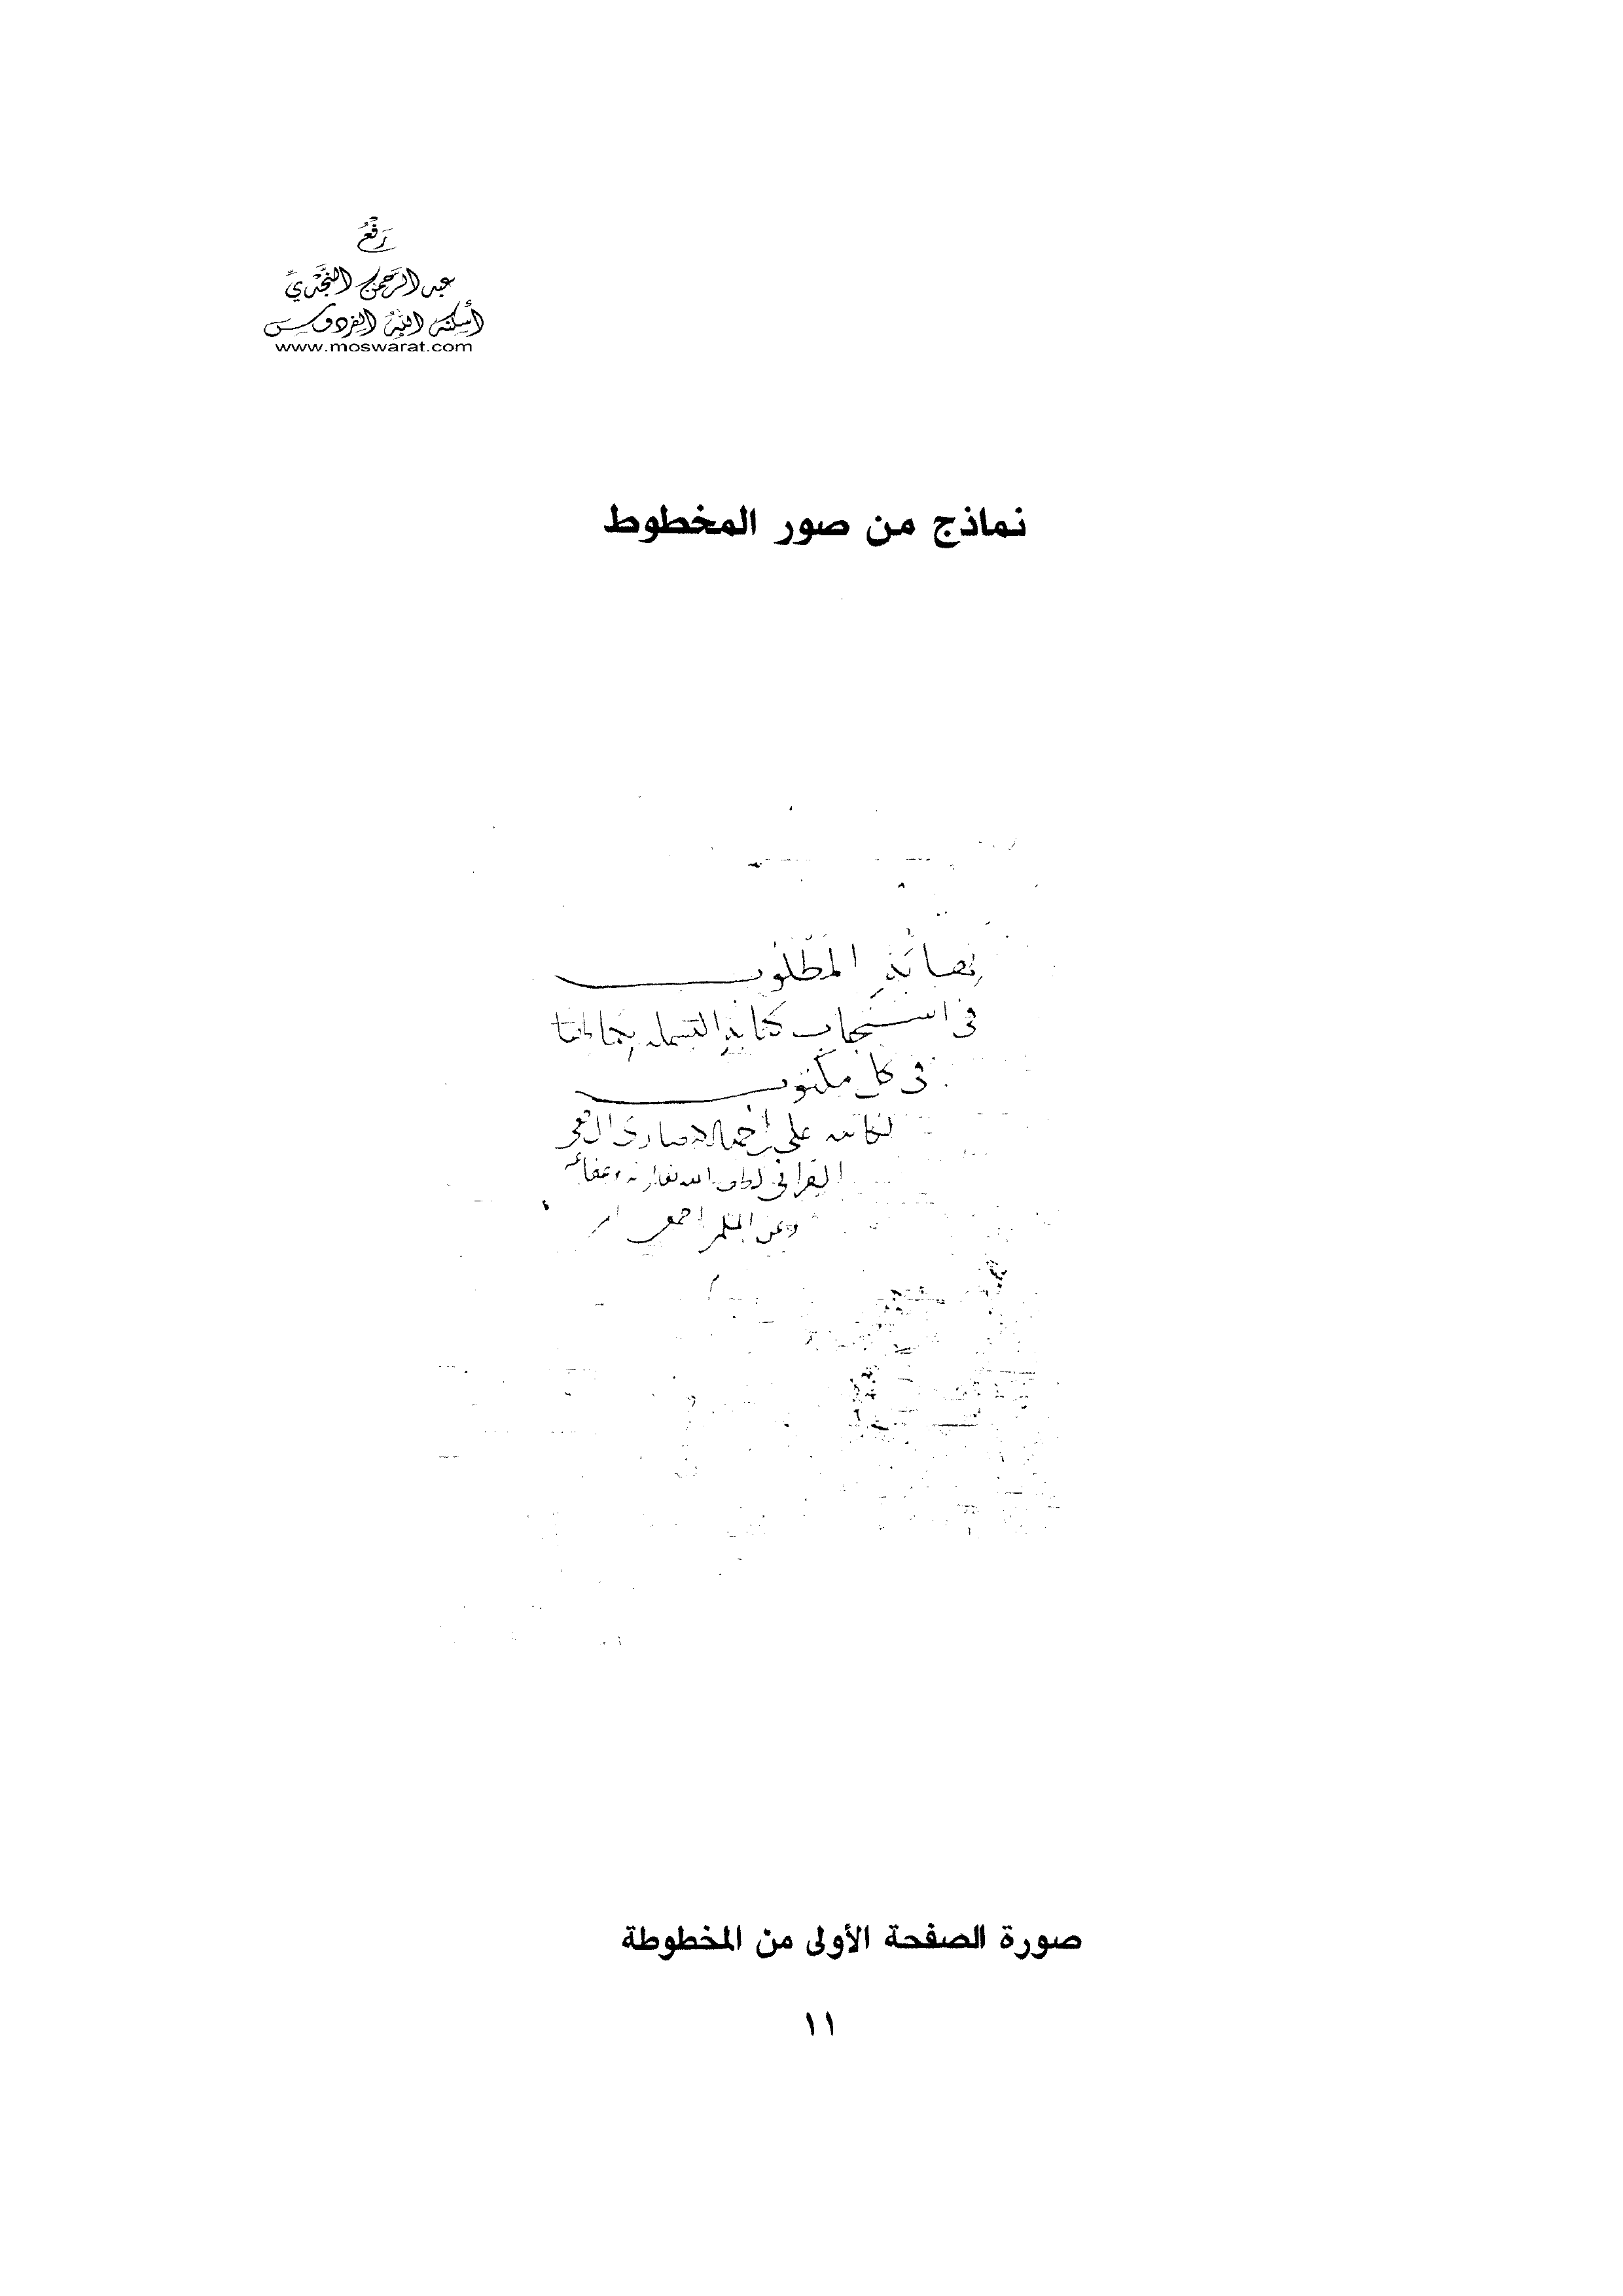 رَفْعُ
عبد الرحمن النجدي
أسكنه الله الفردوس
www.moswarat.com
نماذج من صور المخطوط
نهاية المطلوب
في استحباب كتابة البسملة بكمالها
في كل مكتوب
لكاتبه علي بن أحمد الأنصاري الشافعي
القرافي لطف الله تعالى به وعفا عنه
وعن المسلمين أجمعين
صورة الصفحة الأولى من المخطوطة
١١